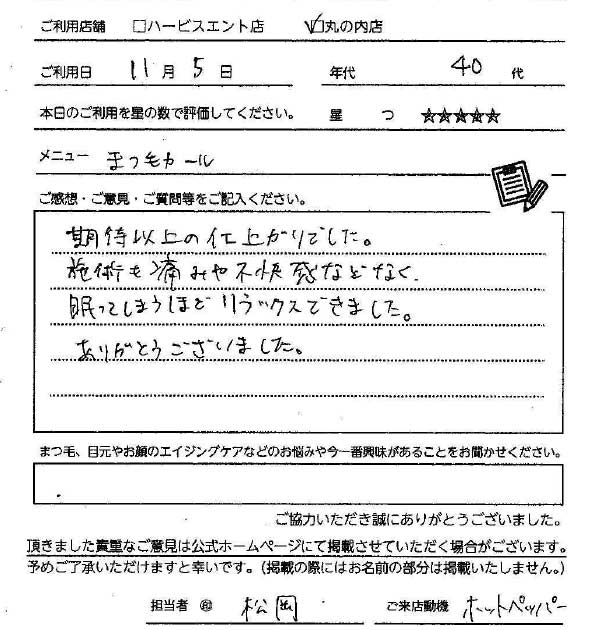 ご利用店舗 □ハービスエント店 ☑丸の内店
ご利用日 11月5日 年代 40代
本日のご利用を星の数で評価してください。 星 つ ☆☆☆☆☆
メニュー まつ毛カール
ご感想・ご意見・ご質問等をご記入ください。
期待以上の仕上がりでした。
施術も痛みや不快感などなく、
眠ってしまうほどリラックスできました。
ありがとうございました。
まつ毛、目元やお顔のエイジングケアなどのお悩みや今一番興味があることをお聞かせください。
ご協力いただき誠にありがとうございました。
頂きました貴重なご意見は公式ホームページにて掲載させていただく場合がございます。
予めご了承いただけますと幸いです。(掲載の際にはお名前の部分は掲載いたしません。)
担当者 ㊞ 松岡 ご来店動機 ホットペッパー